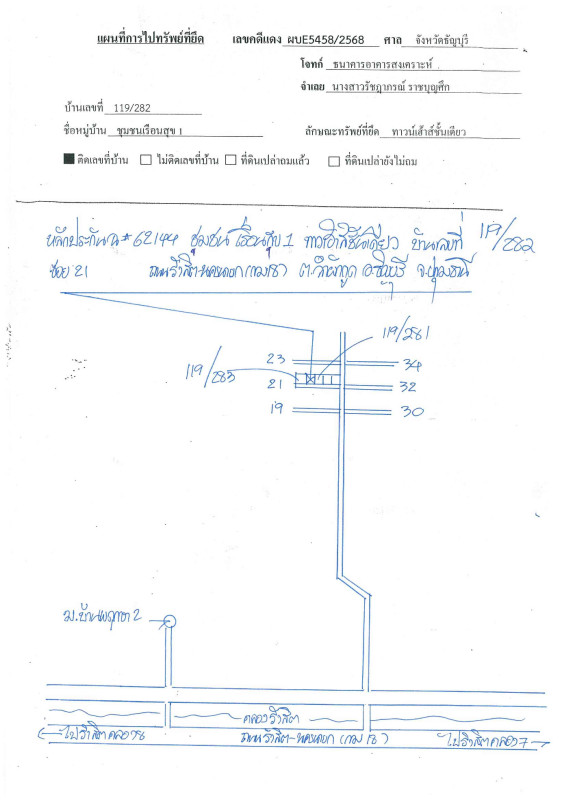 แผนที่การไปทรัพย์ที่ยึด เลขคดีแดง ผบE5458/2568 ศาล จังหวัดธัญบุรี
โจทก์ ธนาคารอาคารสงเคราะห์
จำเลย นางสาวรัชฎาภรณ์ ราชบุญศึก
บ้านเลขที่ 119/282
ชื่อหมู่บ้าน ชุมชนเรือนสุข 1 ลักษณะทรัพย์ที่ยึด ทาวน์เฮ้าส์ชั้นเดียว
ติดเลขที่บ้าน ไม่ติดเลขที่บ้าน ที่ดินเปล่าถมแล้ว ที่ดินเปล่ายังไม่ถม
หลักประกัน # 62144 ชุมชนเรือนสุข 1 ทาวน์เฮ้าส์ชั้นเดียว บ้านเลขที่ 119/282
ซอย 21 ถนนรังสิต-นครนายก ต.ลำผักกูด อ.ธัญบุรี จ.ปทุมธานี
119/281
23 34
119/283 21 32
19 30
ม.บ้านพฤกษา 2
คลองรังสิต
ไปรังสิตคลอง8 ถนนรังสิต-นครนายก ไปรังสิตคลอง7